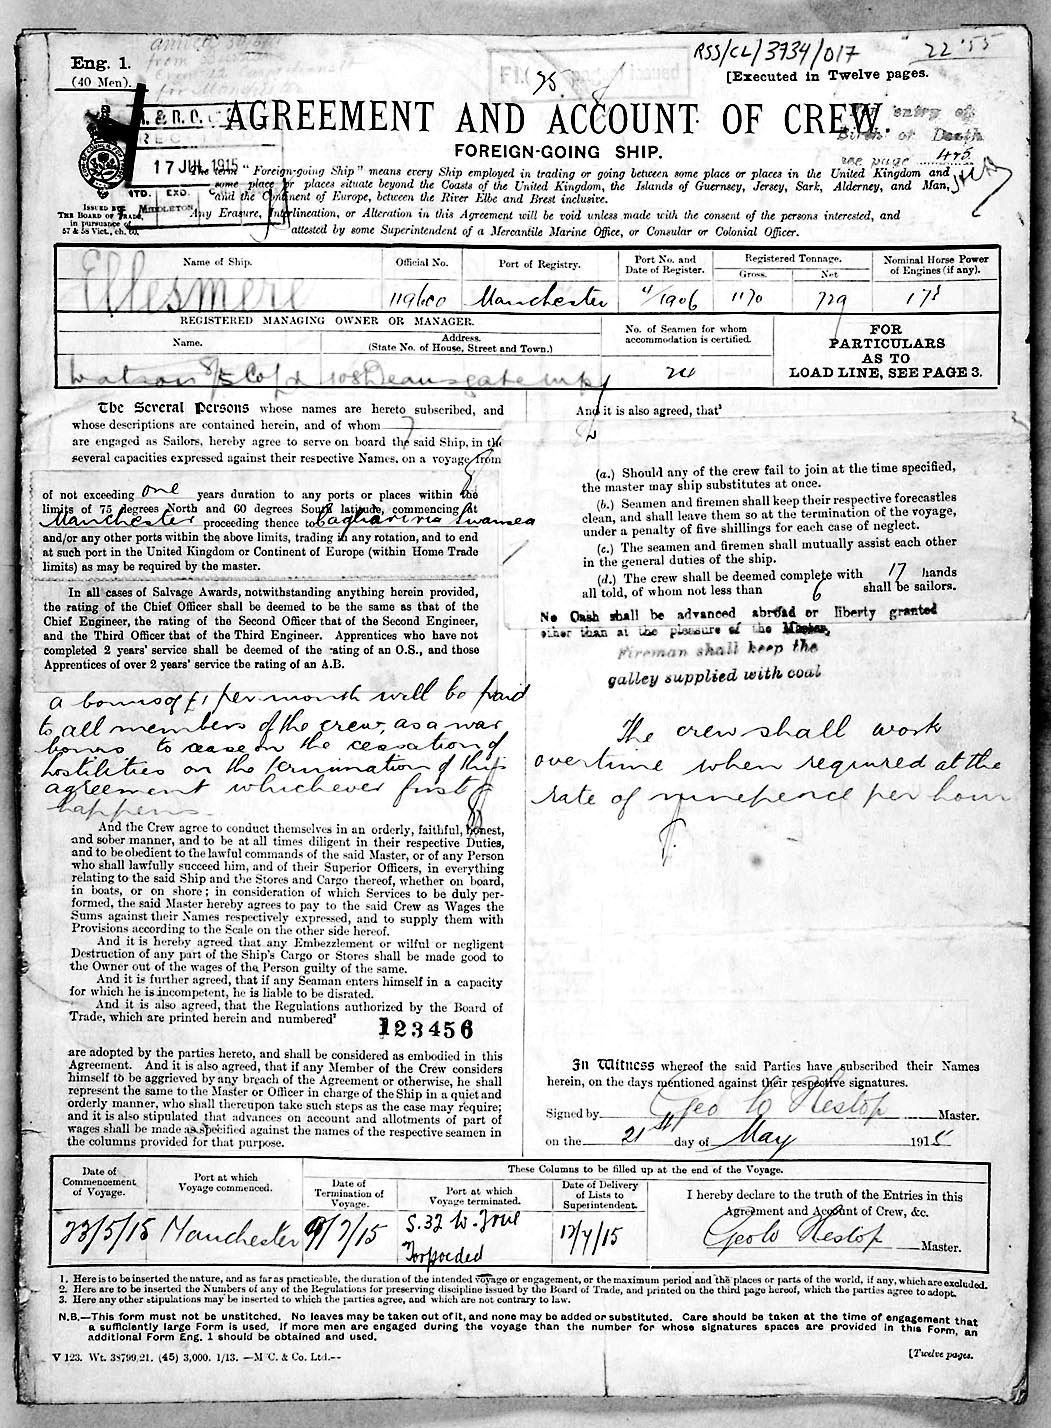 RSS/CL/3734/017
22'55
Eng. 1.
(40 Men).
[Executed in Twelve pages.
AGREEMENT AND ACCOUNT OF CREW.
FOREIGN-GOING SHIP.
17 JUL 1915
MIDDLETON
entry of
Birth or Death
see page
The term "Foreign-going Ship" means every Ship employed in trading or going between some place or places in the United Kingdom and
some place or places situate beyond the Coasts of the United Kingdom, the Islands of Guernsey, Jersey, Sark, Alderney, and Man,
and the Continent of Europe, between the River Elbe and Brest inclusive.
Any Erasure, Interlineation, or Alteration in this Agreement will be void unless made with the consent of the persons interested, and
attested by some Superintendent of a Mercantile Marine Office, or Consular or Colonial Officer.
ISSUED BY
THE BOARD OF TRADE
in pursuance of
57 & 58 Vict., ch. 60.
Name of Ship.
Official No.
Port of Registry.
Port No. and Date of Register.
Registered Tonnage.
Gross.
Net
Nominal Horse Power of Engines (if any).
Ellesmere
119600
Manchester
4/1906
1170
729
178
REGISTERED MANAGING OWNER OR MANAGER.
Name.
Address.
(State No. of House, Street and Town.)
No. of Seamen for whom accommodation is certified.
FOR
PARTICULARS
AS TO
LOAD LINE, SEE PAGE 3.
Watson S/S Co Ld
108 Deansgate
24
The Several Persons whose names are hereto subscribed, and
whose descriptions are contained herein, and of whom
are engaged as Sailors, hereby agree to serve on board the said Ship, in the
several capacities expressed against their respective Names, on a voyage from
of not exceeding one years duration to any ports or places within the
limits of 75 degrees North and 60 degrees South latitude, commencing at
Manchester proceeding thence to Cagliari via Swansea
and/or any other ports within the above limits, trading in any rotation, and to end
at such port in the United Kingdom or Continent of Europe (within Home Trade
limits) as may be required by the master.
In all cases of Salvage Awards, notwithstanding anything herein provided,
the rating of the Chief Officer shall be deemed to be the same as that of the
Chief Engineer, the rating of the Second Officer that of the Second Engineer,
and the Third Officer that of the Third Engineer. Apprentices who have not
completed 2 years' service shall be deemed of the rating of an O.S., and those
Apprentices of over 2 years' service the rating of an A.B.
a bonus of £1 per month will be paid
to all members of the crew, as a war
bonus to cease on the cessation of
hostilities on the termination of this
agreement whichever first
happens
And the Crew agree to conduct themselves in an orderly, faithful, honest,
and sober manner, and to be at all times diligent in their respective Duties,
and to be obedient to the lawful commands of the said Master, or of any Person
who shall lawfully succeed him, and of their Superior Officers, in everything
relating to the said Ship and the Stores and Cargo thereof, whether on board,
in boats, or on shore; in consideration of which Services to be duly per-
formed, the said Master hereby agrees to pay to the said Crew as Wages the
Sums against their Names respectively expressed, and to supply them with
Provisions according to the Scale on the other side hereof.
And it is hereby agreed that any Embezzlement or wilful or negligent
Destruction of any part of the Ship's Cargo or Stores shall be made good to
the Owner out of the wages of the Person guilty of the same.
And it is further agreed, that if any Seaman enters himself in a capacity
for which he is incompetent, he is liable to be disrated.
And it is also agreed, that the Regulations authorized by the Board of
Trade, which are printed herein and numbered²
123456
are adopted by the parties hereto, and shall be considered as embodied in this
Agreement. And it is also agreed, that if any Member of the Crew considers
himself to be aggrieved by any breach of the Agreement or otherwise, he shall
represent the same to the Master or Officer in charge of the Ship in a quiet and
orderly manner, who shall thereupon take such steps as the case may require;
and it is also stipulated that advances on account and allotments of part of
wages shall be made as specified against the names of the respective seamen in
the columns provided for that purpose.
And it is also agreed, that³
(a.) Should any of the crew fail to join at the time specified,
the master may ship substitutes at once.
(b.) Seamen and firemen shall keep their respective forecastles
clean, and shall leave them so at the termination of the voyage,
under a penalty of five shillings for each case of neglect.
(c.) The seamen and firemen shall mutually assist each other
in the general duties of the ship.
(d.) The crew shall be deemed complete with 17 hands
all told, of whom not less than 6 shall be sailors.
No Cash shall be advanced abroad or liberty granted
other than at the pleasure of the Master,
Fireman shall keep the
galley supplied with coal
The crew shall work
overtime when required at the
rate of ninepence per hour
In Witness whereof the said Parties have subscribed their Names
herein, on the days mentioned against their respective signatures.
Signed by Geo W Heslop Master.
on the 21st day of May 1915
Date of Commencement of Voyage.
Port at which Voyage commenced.
These Columns to be filled up at the end of the Voyage.
Date of Termination of Voyage.
Port at which Voyage terminated.
Date of Delivery of Lists to Superintendent.
I hereby declare to the truth of the Entries in this
Agreement and Account of Crew, &c.
23/5/15
Manchester
9/7/15
Torpoeded
Geo W Heslop Master.
1. Here is to be inserted the nature, and as far as practicable, the duration of the intended voyage or engagement, or the maximum period and the places or parts of the world, if any, which are excluded.
2. Here are to be inserted the Numbers of any of the Regulations for preserving discipline issued by the Board of Trade, and printed on the third page hereof, which the parties agree to adopt.
3. Here any other stipulations may be inserted to which the parties agree, and which are not contrary to law.
N.B.—This form must not be unstitched. No leaves may be taken out of it, and none may be added or substituted. Care should be taken at the time of engagement that
a sufficiently large Form is used. If more men are engaged during the voyage than the number for whose signatures spaces are provided in this Form, an
additional Form Eng. 1 should be obtained and used.
V 123. Wt. 38799/21. (45) 3,000. 1/13. —M'C. & Co. Ltd.--
[Twelve pages.